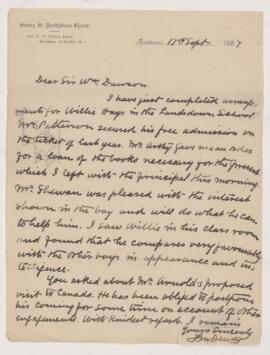 Stanley St. Presbyterian Church
Montreal 17th Sept 1887
Dear Sir Wm. Dawson.
I have just completed arrange-
ments for Willie Hays in the Landsdown School
Mr. Patterson secured his free admission on
the ticket of last year. Mr. Arthy gave me an order
for a loan of the books necessary for the present
which I left with the principal this morning
Mr. Shewan was pleased with the interest
shown in the boy and will do what he can
to help him. I saw Willie in his class room
and found that he compares very favourably
with the other boys in appearance and in-
telligence.
You asked about Mr. Arnold's proposed
visit to Canada. He has been obliged to postpone
his coming for some time on account of other
engagements. With kindest regards, I remain
Yours Sincerely
F. M. Dewey